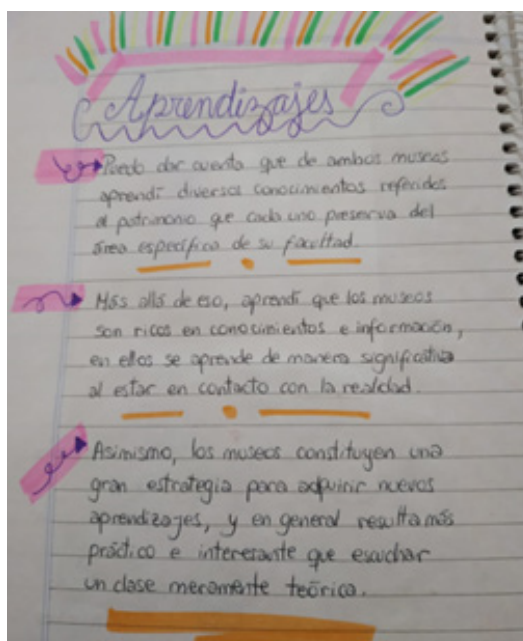 Aprendizajes
Puedo dar cuenta que de ambos museos
aprendí diversos conocimientos referidos
al patrimonio que cada uno preserva del
área específica de su facultad.
Más allá de eso, aprendí que los museos
son ricos en conocimientos e información,
en ellos se aprende de manera significativa
al estar en contacto con la realidad.
Asimismo, los museos constituyen una
gran estrategia para adquirir nuevos
aprendizajes, y en general resulta más
práctico e interesante que escuchar
un clase meramente teórica.